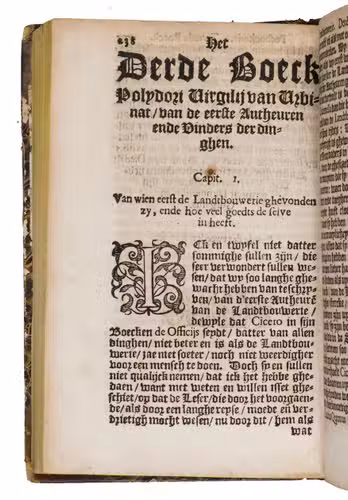 238 Het
Derde Boeck
Polydori Virgilij van Urbi-
nat / van de eerste Autheuren
ende Vinders der din-
ghen.
Capit. 1.
Van wien eerst de Landtbouwerie ghevonden
zy, ende hoe veel goedts de selve
in heeft.
ICk en twyfel niet datter
sommighe sullen zijn / die
seer verwondert sullen we-
sen / dat wy soo langhe ghe-
wacht hebben van te schry-
ven / van d'eerste Autheurē
van de Landtbouwerie /
dewyle dat Cicero in sijn
Boecken de Officijs seydt / datter van allen
dinghen / niet beter en is als de Landtbou-
werie / jae niet soeter / noch niet weerdigher
voor een mensch te doen. Doch sy en sullen
niet qualijck nemen / dat ick het hebbe ghe-
daen / want met weten en willen isset ghe-
schiet / op dat de Leser / die door het voorgaen-
de / als door een langhe reyse / moede en ver-
drietigh mocht wesen / nu door dit / hem als
wat